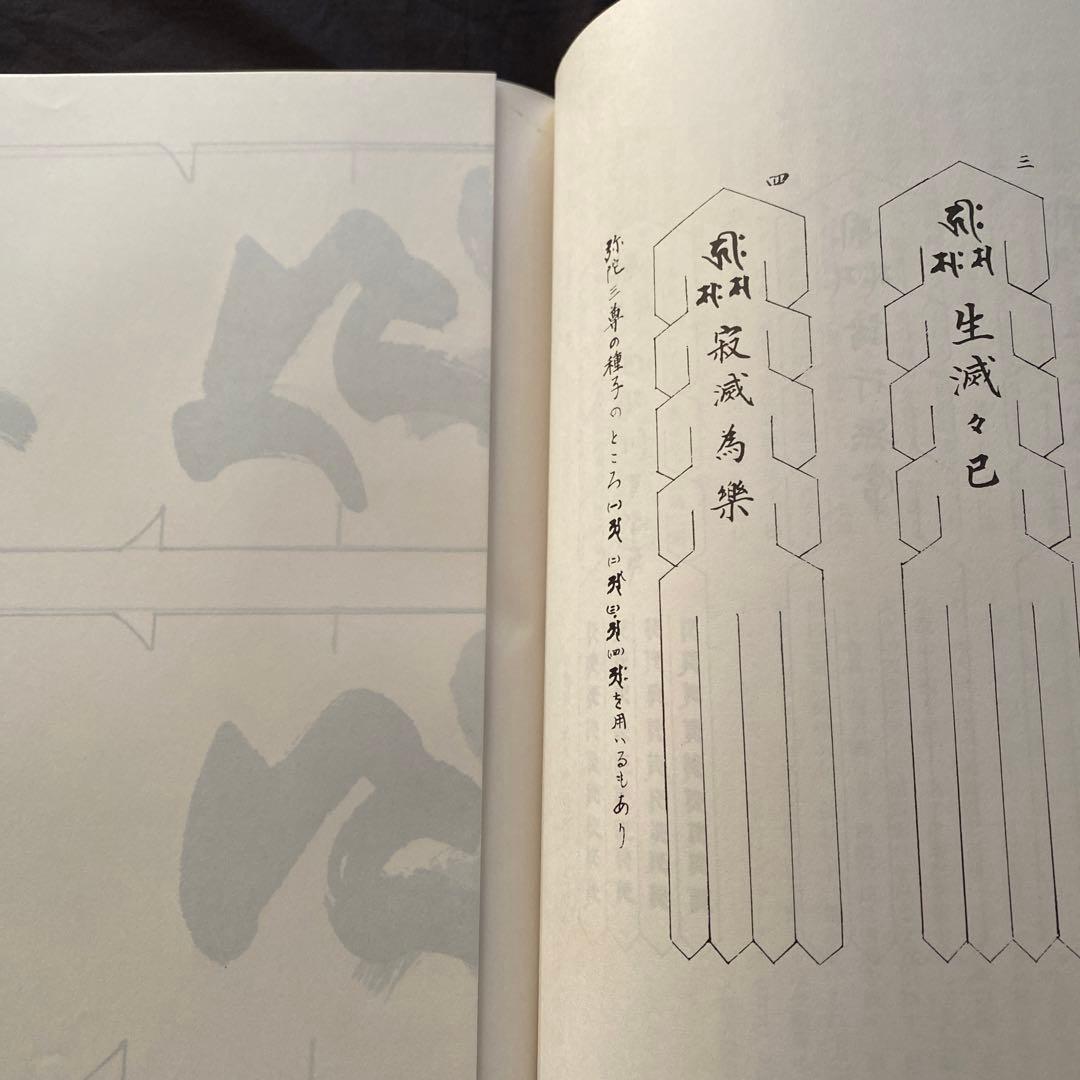 三
𑖮𑖿𑖨𑖱𑖾
𑖭 𑖭𑖾
生滅々已
四
𑖮𑖿𑖨𑖱𑖾
𑖭 𑖭𑖾
寂滅為樂
弥陀三尊の種子のところ(一)𑖀(二)𑖁(三)𑖀𑖽(四)𑖀𑖾を用いるもあり